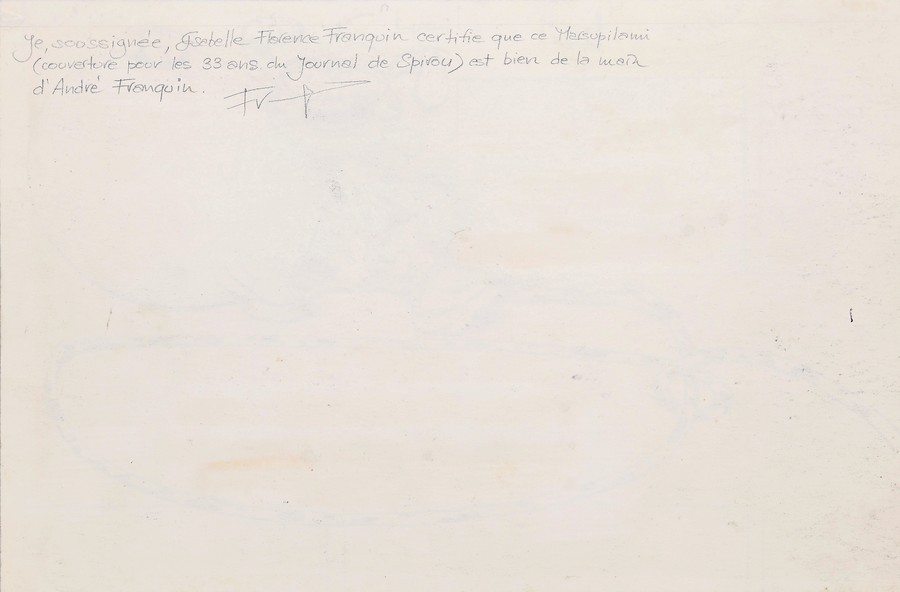 Je, soussignée, Isabelle Florence Franquin certifie que ce Marsupilami
(couverture pour les 33 ans du Journal de Spirou) est bien de la main
d'André Franquin.